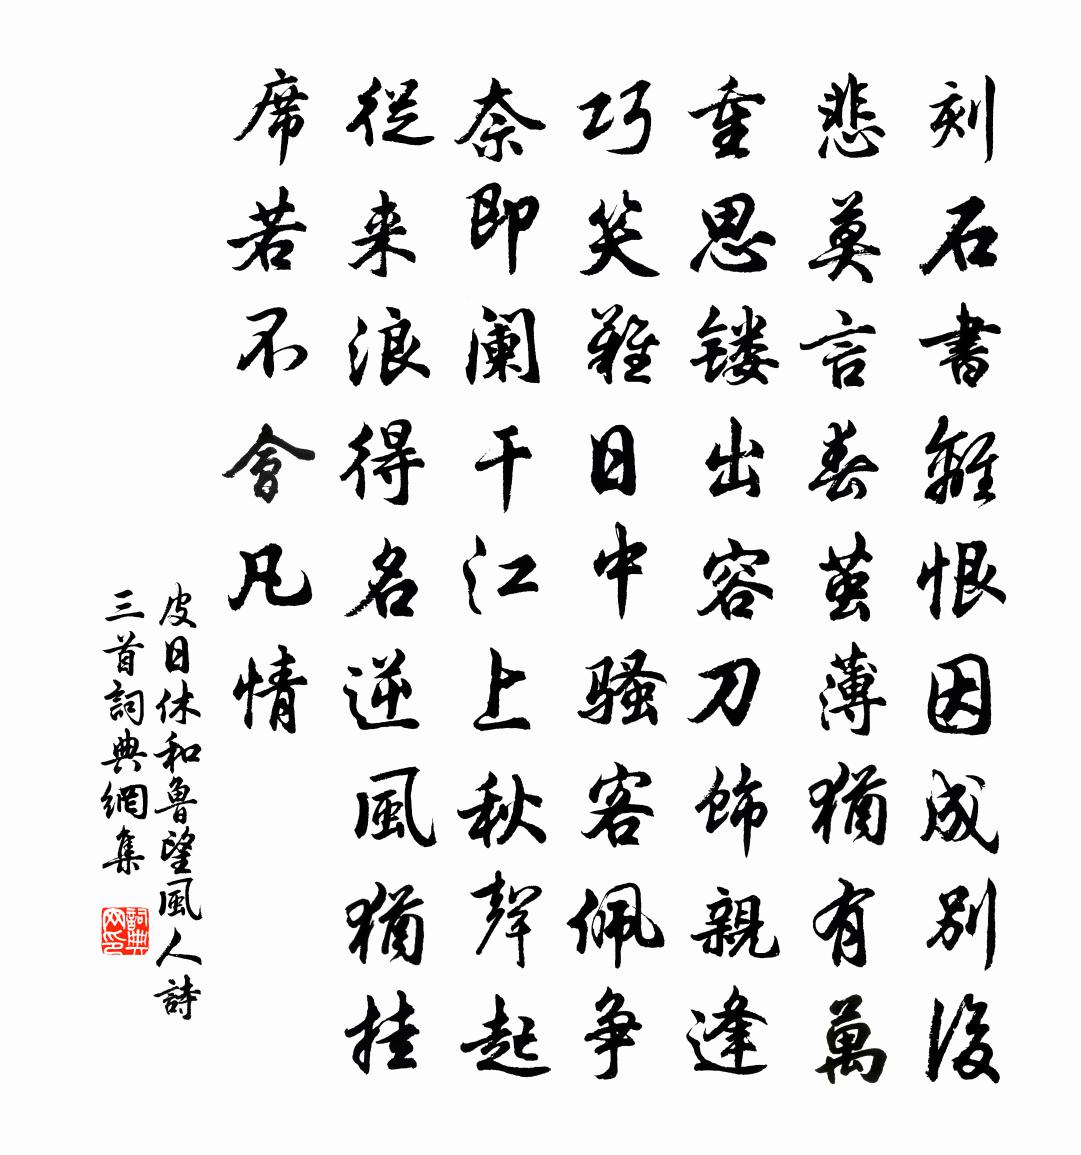 刻石書離恨因成別後
悲莫言春茧薄猶有萬
重思镂出容刀飾親逢
巧笑難日中騷客佩争
奈即阑干江上秋聲起
從来浪得名逆風猶挂
席若不會凡情
皮日休和魯望風人詩
三首詞典網集
詞典网印